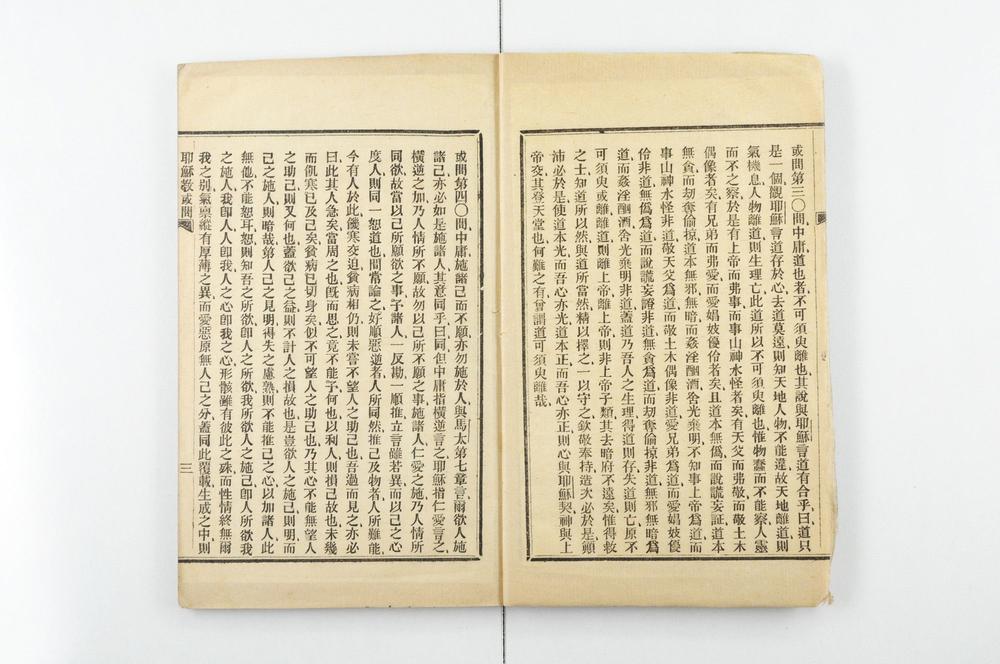 或問第三〇問中庸道也者不可須臾離也其說與耶穌言道有合乎曰道只
是一個觀耶穌言道存於心去道莫遠則知天地人物不能違故天地離道則
氣機息人物離道則生理亡此道所以不可須臾離也惟物蠢而不能察人靈
而不之察於是有上帝而弗事而事山神水怪者矣有天父而弗敬而敬土木
偶像者矣有兄弟而弗愛而愛娼妓優伶者矣且道本無僞而說謊妄証道本
無貪而刧奪偷掠道本無邪無暗而姦淫酗酒舍光棄明不知事上帝爲道而
事山神水怪非道敬天父爲道而敬土木偶像非道愛兄弟爲道而愛娼妓優
伶非道無僞爲道而說謊妄證非道無貪爲道而刧奪偷掠非道無邪無暗爲
道而姦淫酗酒舍光棄明非道蓋道乃吾人之生理得道則存失道則亡原不
可須臾或離離道則離上帝離上帝則非上帝子類其去暗府不遠矣惟得救
之士知道所以然與道所當然精以擇之一以守之欽敬奉持造次必於是顚
沛必於是使道本光而吾心亦光道本正而吾心亦正則心與耶穌契神與上
帝交其登天堂也何難之有曾謂道可須臾離哉
或問第四〇問中庸施諸己而不願亦勿施於人與馬太第七章言爾欲人施
諸己亦必如是施諸人其意同乎曰同但中庸指橫逆言之耶穌指仁愛言之
橫逆之加乃人情所不願故勿以己所不願之事施諸人仁愛之施乃人情所
同欲故當以己所願欲之事予諸人一反勘一順推立言雖若異而以己之心
度人則同一恕道也間常論之好順惡逆者人所同然推己及物者人所難能
今有人於此饑寒交迫貧病相仍則未嘗不望人之助己也吾過而見之亦必
曰此其人急矣當周之也旣而思之竟不能予何也以利人則損己故也未幾
而飢寒已及己矣貧病已切身矣似不可望人之助己也乃其心不能無望人
之助己則又何也蓋欲己之益則不計人之損故也是豈欲人之施己則明而
己之施人則暗哉第人己之見明得失之慮熟則不能推己之心以加諸人此
無他不能恕耳恕則知吾之所欲卽人之所欲我所欲人之施己卽人所欲我
之施人我卽人人卽我人之心卽我之心形骸雖有彼此之殊而性情終無爾
我之別氣稟縱有厚薄之異而愛惡原無人己之分蓋同此覆載生成之中則
耶穌敎或問
三